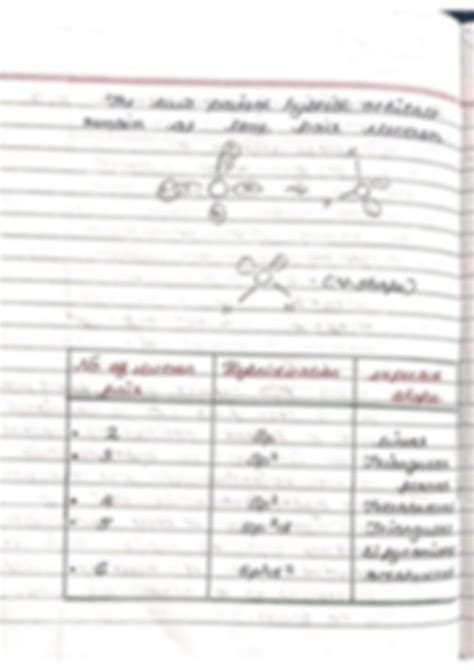 The two paired hybrid orbitals
remain as lone pair electron
(V-shape)
No of electron pair | Hybridization | expected shape
• 2 | Sp | Linear
• 3 | Sp² | Triangular planar
• 4 | Sp³ | Tetrahedral
• 5 | Sp³d | Triangular Bipyramidal
• 6 | Sp³d² | octahedral